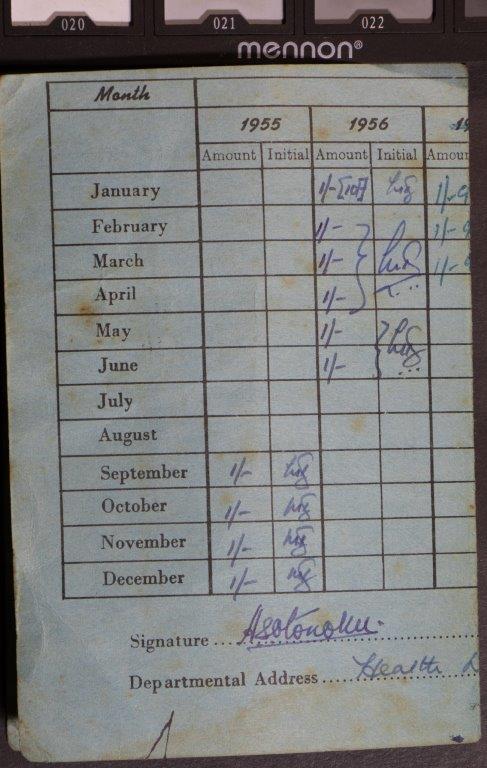 020 021 022
mennon®
Month
1955 1956
Amount Initial Amount Initial Amoun
January 1/-
February 1/-
March 1/-
April 1/-
May 1/-
June 1/-
July
August
September 1/-
October 1/-
November 1/-
December 1/-
Signature
Departmental Address Health